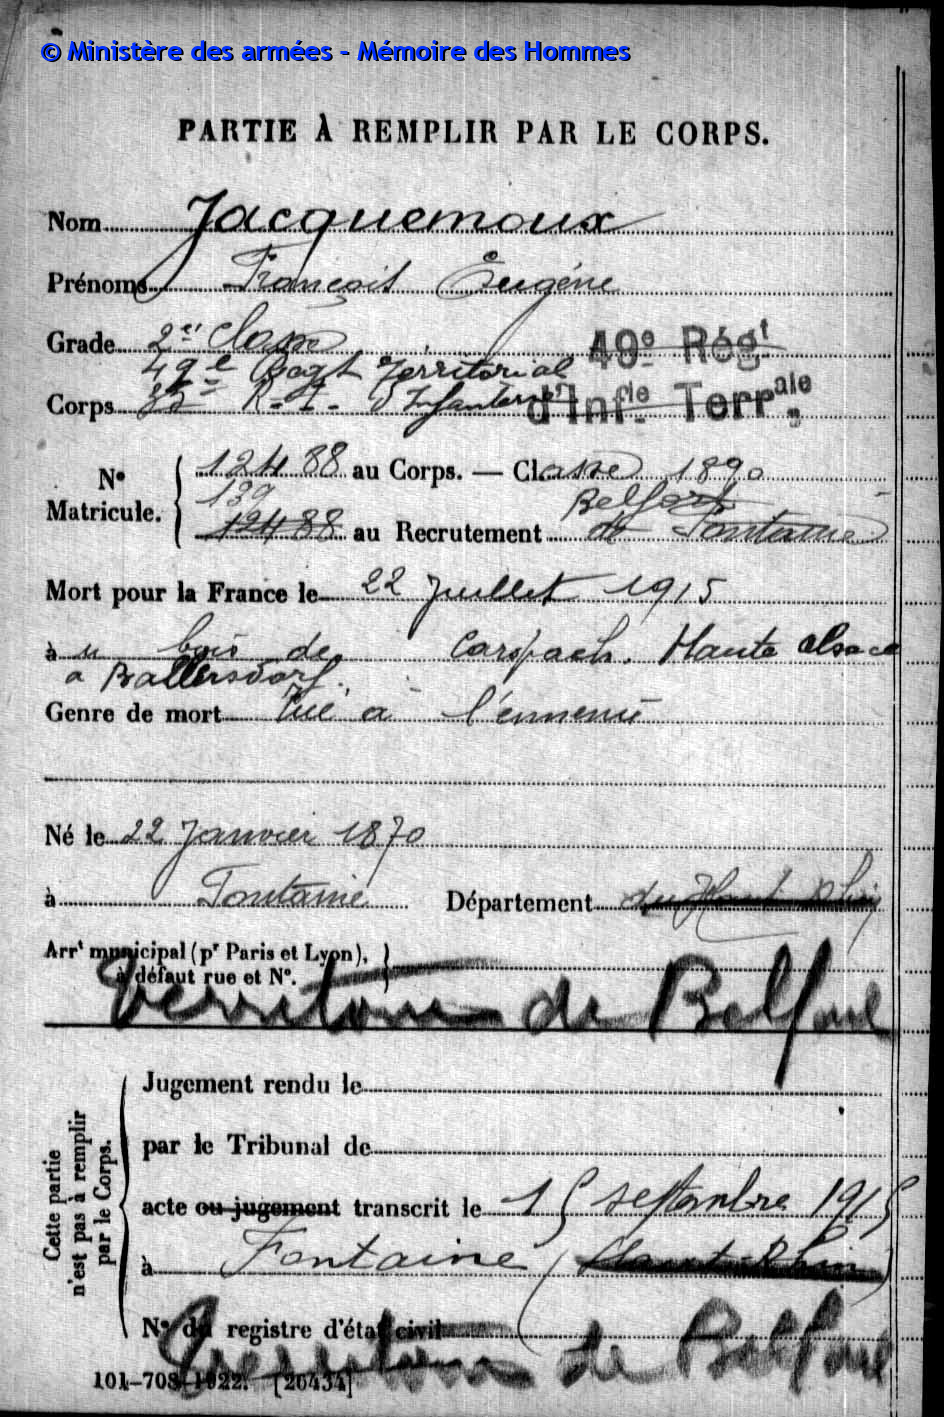 © Ministère des armées - Mémoire des Hommes
PARTIE À REMPLIR PAR LE CORPS.
Nom Jacquemoux
Prénoms François Eugène
Grade 2e Classe
49e Régt
49e Regt Territorial
Corps 35e R. I. d'Infanterie
d'Infie Terrale
12488 au Corps. — Classe 1890
No
Matricule.
139 Belfort
12488 au Recrutement de Fontaine
Mort pour la France le 22 Juillet 1915
à u bois de Carspach. Haute Alsace
a Ballersdorf.
Genre de mort Tué à l'ennemi
Né le 22 Janvier 1870
à Fontaine Département du Haut Rhin
Arrt municipal (pr Paris et Lyon),
à défaut rue et No.
Territoire de Belfort
Cette partie
n'est pas à remplir
par le Corps.
Jugement rendu le
par le Tribunal de
acte ou jugement transcrit le 15 septembre 1915
à Fontaine (Haut-Rhin)
No du registre d'état civil
Territoire de Belfort
101-708-1922. [26434]